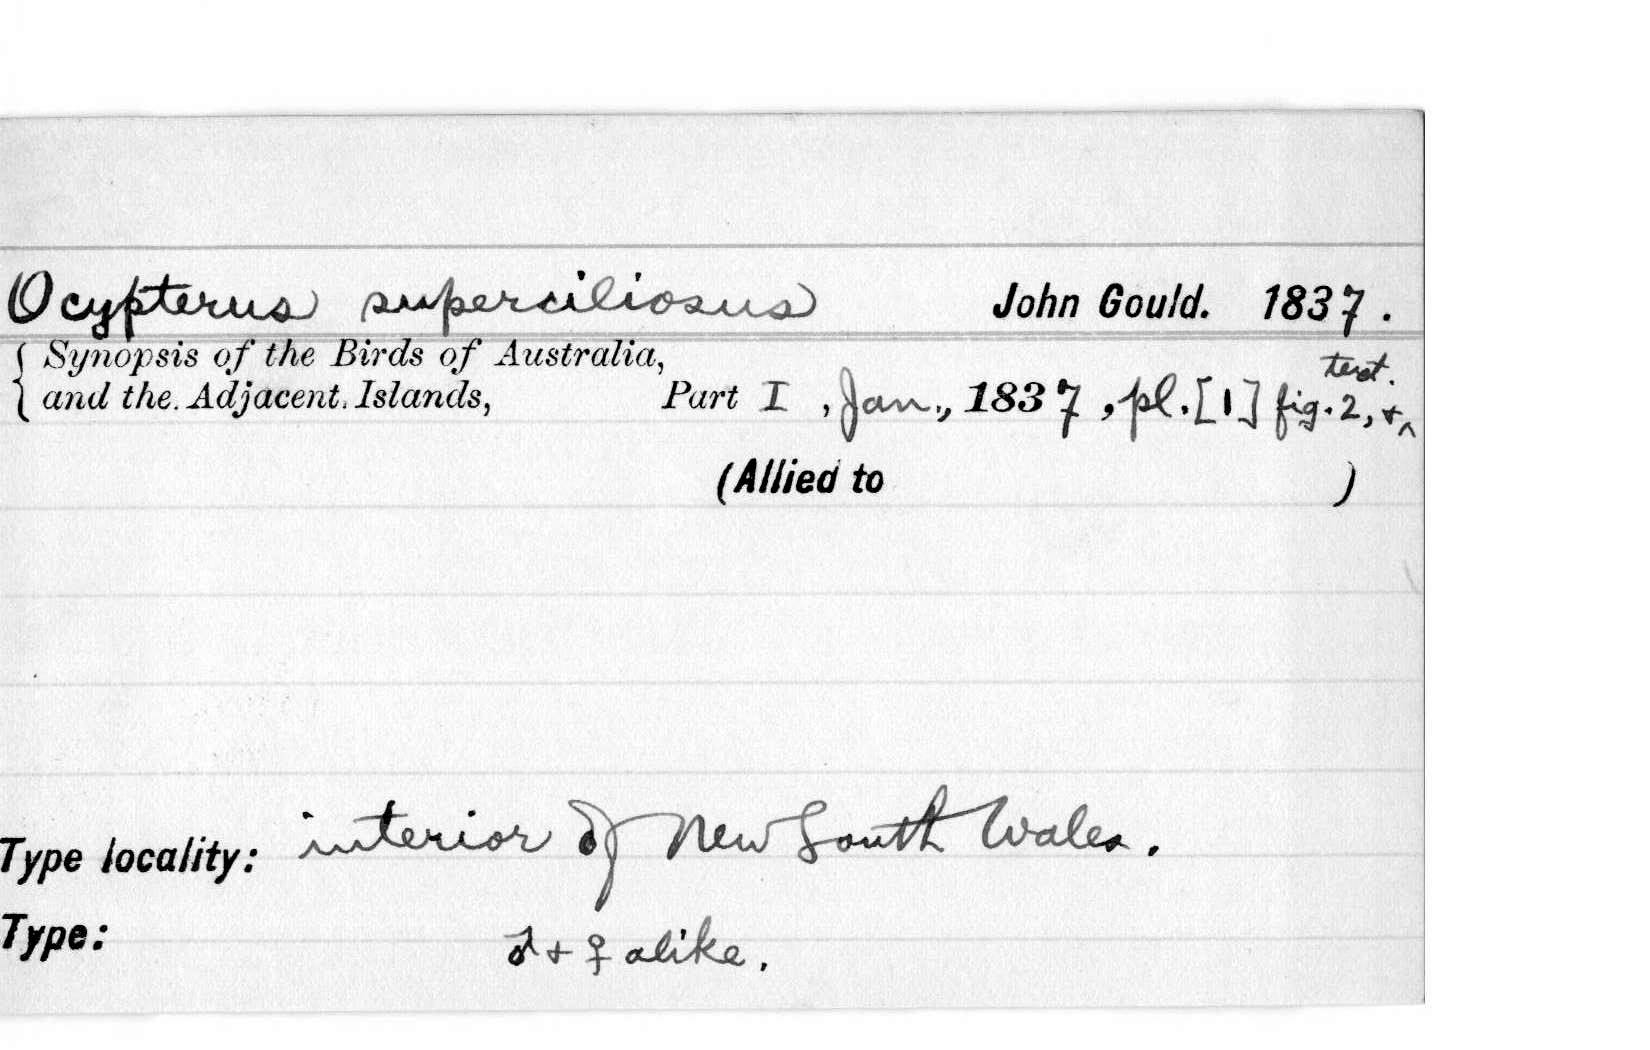 Ocypterus superciliosus John Gould. 1837.
Synopsis of the Birds of Australia,
and the Adjacent Islands, Part I, Jan., 1837, pl. [1] fig. 2, + ^ text.
(Allied to )
Type locality: interior of New South Wales.
Type: ♂ + ♀ alike.